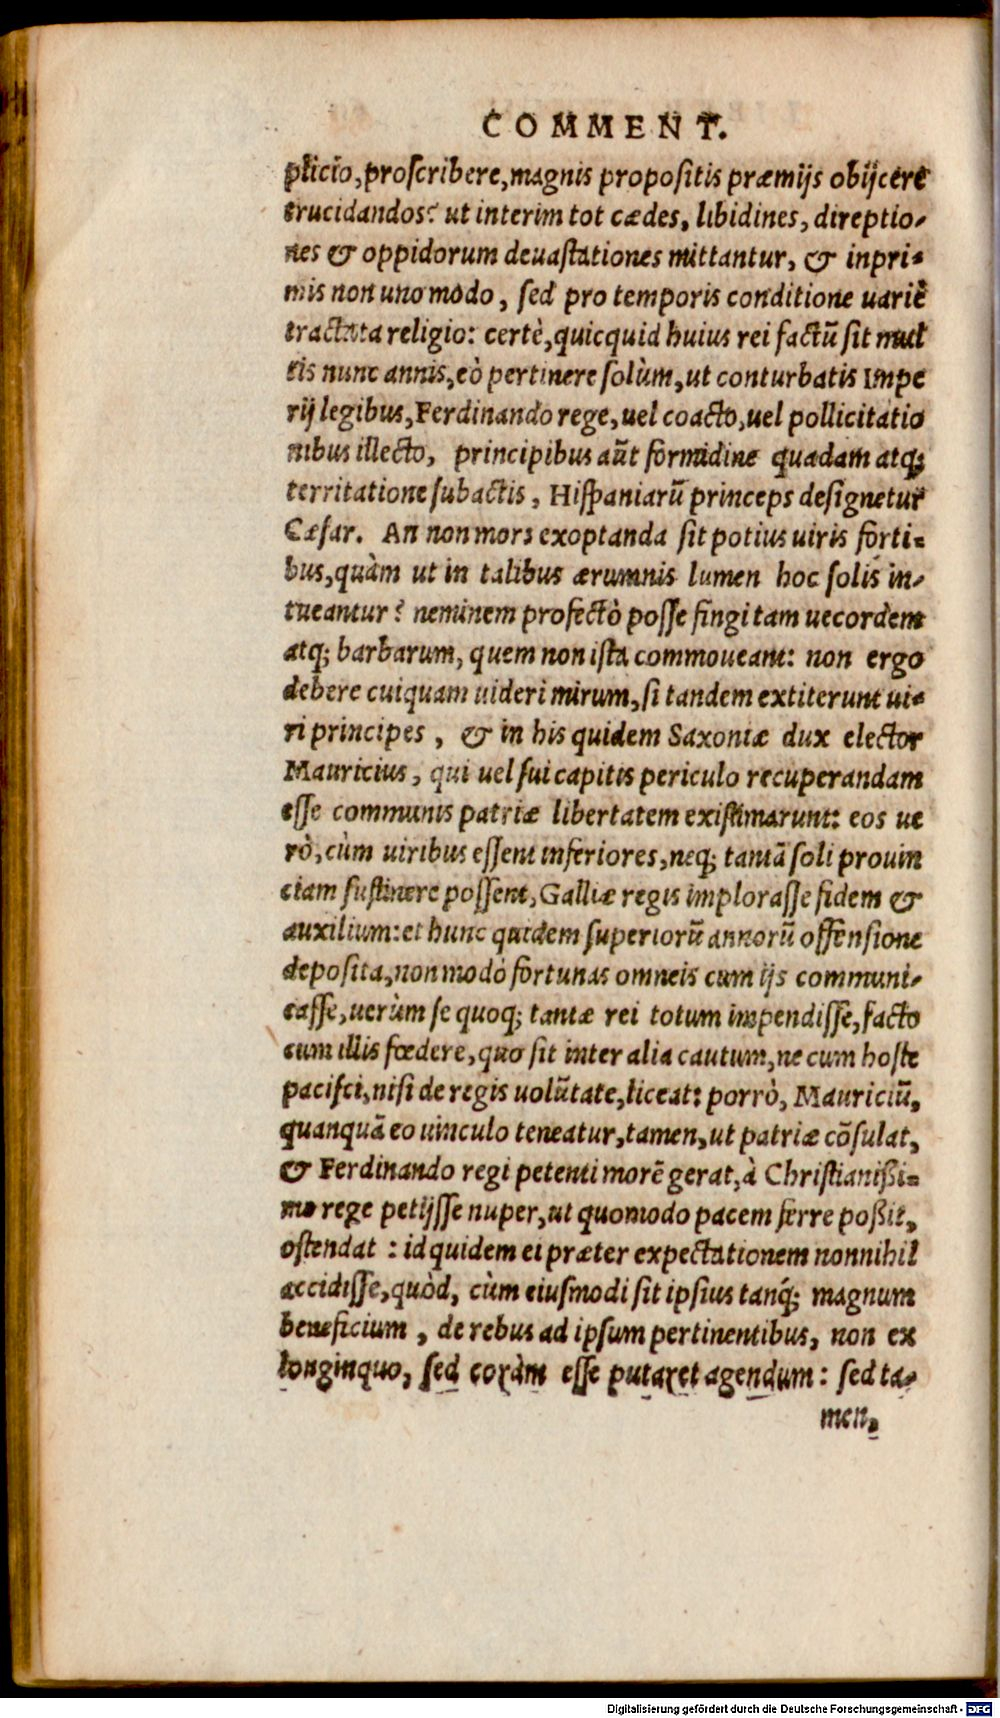 COMMENT.
plicio, proscribere, magnis propositis præmijs obijcere
trucidandos? ut interim tot cædes, libidines, direptio-
nes & oppidorum deuastationes mittantur, & inpri-
mis non uno modo, sed pro temporis conditione uariè
tractata religio: certè, quicquid huius rei factũ sit mul
tis nunc annis, eò pertinere solùm, ut conturbatis Impe
rij legibus, Ferdinando rege, uel coacto, uel pollicitatio
nibus illecto, principibus aũt formidine quadam atq;
territatione subactis, Hispaniarũ princeps designetur
Cæsar. An non mors exoptanda sit potius uiris forti-
bus, quàm ut in talibus ærumnis lumen hoc solis in-
tueantur? neminem profectò posse fingi tam uecordem
atq; barbarum, quem non ista commoueant: non ergo
debere cuiquam uideri mirum, si tandem extiterunt ui-
ri principes, & in his quidem Saxoniæ dux elector
Mauricius, qui uel sui capitis periculo recuperandam
esse communis patriæ libertatem existimarunt: eos ue
rò, cùm uiribus essent inferiores, neq; tantã soli prouin
ciam sustinere possent, Galliæ regis implorasse fidem &
auxilium: et hunc quidem superiorũ annorũ offensione
deposita, non modò fortunas omneis cum ijs communi-
casse, uerùm se quoq; tantæ rei totum impendisse, facto
cum illis fœdere, quo sit inter alia cautum, ne cum hoste
pacisci, nisi de regis uolũtate, liceat: porrò, Mauriciũ,
quanquã eo uinculo teneatur, tamen, ut patriæ cõsulat,
& Ferdinando regi petenti morẽ gerat, à Christianißi-
mo rege petijsse nuper, ut quomodo pacem ferre poßit,
ostendat : id quidem ei præter expectationem nonnihil
accidisse, quòd, cùm eiusmodi sit ipsius tanq́; magnum
beneficium, de rebus ad ipsum pertinentibus, non ex
longinquo, sed coràm esse putaret agendum: sed ta-
men,
Digitalisierung gefördert durch die Deutsche Forschungsgemeinschaft - DFG